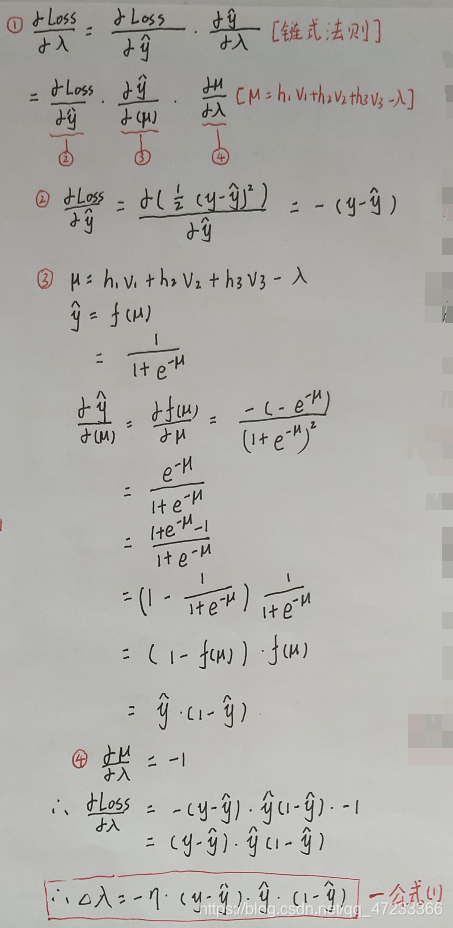 ① ∂Loss/∂λ = ∂Loss/∂ŷ · ∂ŷ/∂λ [链式法则]
= ∂Loss/∂ŷ · ∂ŷ/∂(μ) · ∂μ/∂λ [μ = h₁v₁+h₂v₂+h₃v₃-λ]
② ③ ④
② ∂Loss/∂ŷ = ∂(½(y-ŷ)²)/∂ŷ = -(y-ŷ)
③ μ = h₁v₁+h₂v₂+h₃v₃-λ
ŷ = f(μ)
= 1/(1+e^-μ)
∂ŷ/∂(μ) = ∂f(μ)/∂μ = -(-e^-μ)/(1+e^-μ)²
= e^-μ/(1+e^-μ)
= (1+e^-μ-1)/(1+e^-μ)
= (1 - 1/(1+e^-μ)) 1/(1+e^-μ)
= (1-f(μ))·f(μ)
= ŷ·(1-ŷ)
④ ∂μ/∂λ = -1
∴ ∂Loss/∂λ = -(y-ŷ)·ŷ(1-ŷ)·-1
= (y-ŷ)·ŷ(1-ŷ)
∴ △λ = -η·(y-ŷ)·ŷ·(1-ŷ) —公式(1)
https://blog.csdn.net/qq_47233366